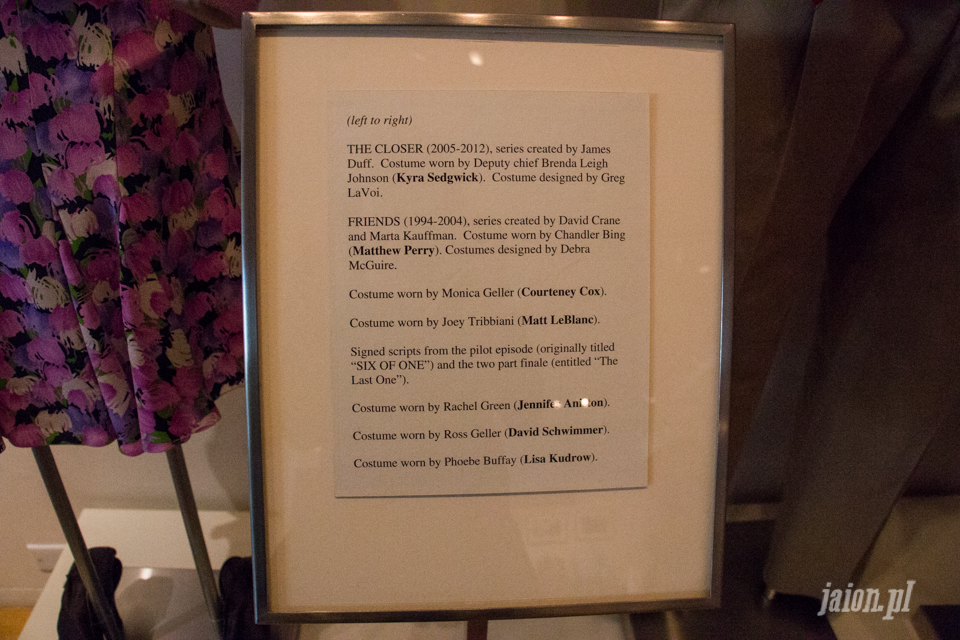 (left to right)
THE CLOSER (2005-2012), series created by James
Duff. Costume worn by Deputy chief Brenda Leigh
Johnson (Kyra Sedgwick). Costume designed by Greg
LaVoi.
FRIENDS (1994-2004), series created by David Crane
and Marta Kauffman. Costume worn by Chandler Bing
(Matthew Perry). Costumes designed by Debra
McGuire.
Costume worn by Monica Geller (Courteney Cox).
Costume worn by Joey Tribbiani (Matt LeBlanc).
Signed scripts from the pilot episode (originally titled
“SIX OF ONE”) and the two part finale (entitled “The
Last One”).
Costume worn by Rachel Green (Jennifer Aniston).
Costume worn by Ross Geller (David Schwimmer).
Costume worn by Phoebe Buffay (Lisa Kudrow).
jaion.pl